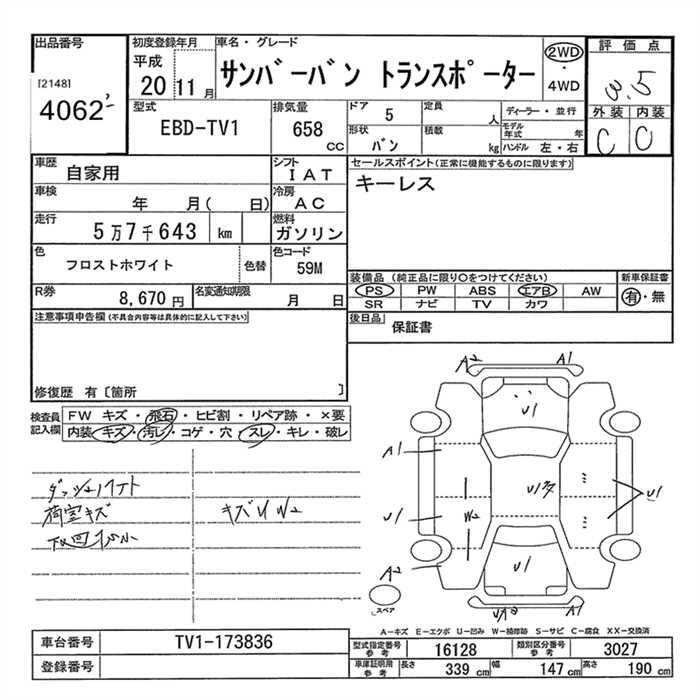 出品番号 初度登録年月 車名・グレード 2WD 評価点
平成 サンバーバン トランスポーター ・ 3.5
[2148] 20 11月 4WD
4062 型式 排気量 ドア 5 定員 人 ディーラー・並行 外装 内装
EBD-TV1 658 CC 形状 バン 積載 kg モデル年式 年 C C
ハンドル 左・右
車歴 自家用 シフト IAT セールスポイント(正常に機能するものに限ります)
車検 年 月( 日) 冷房 AC キーレス
走行 5万7千643 km 燃料 ガソリン
色 フロストホワイト 色替 色コード 59M
装備品 (純正品に限り○をつけてください) 新車保証書
R券 8,670円 名変通知期限 月 日 PS PW ABS エアB AW 有・無
SR ナビ TV カワ
注意事項申告欄(不具合内容等は具体的に記入して下さい) 後日品 保証書
修復歴 有〔箇所 〕
検査員記入欄 FW キズ・飛石・ヒビ割・リペア跡・×要
内装 キズ・汚レ・コゲ・穴・スレ・キレ・破レ
A2 A1
U1
A1
荷室キズ キズU W2
U1 W2 U1
A2 U1
スペア A1
A-キズ E-エクボ U-凹み W-補修跡 S-サビ C-腐食 XX-交換済
車台番号 TV1-173836 型式指定番号 参考 16128 類別区分番号 参考 3027
登録番号 車庫証明用 参考 長さ 339 cm 幅 147 cm 高さ 190 cm